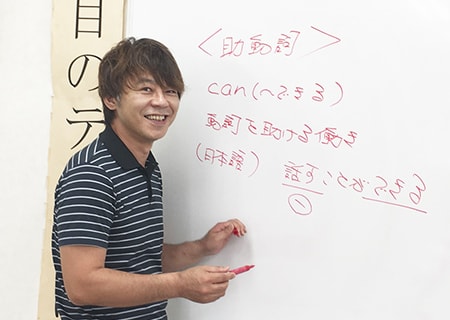 目のテ
<助動詞>
can(〜できる)
動詞を助ける働き
(日本語)
話すことができる
①